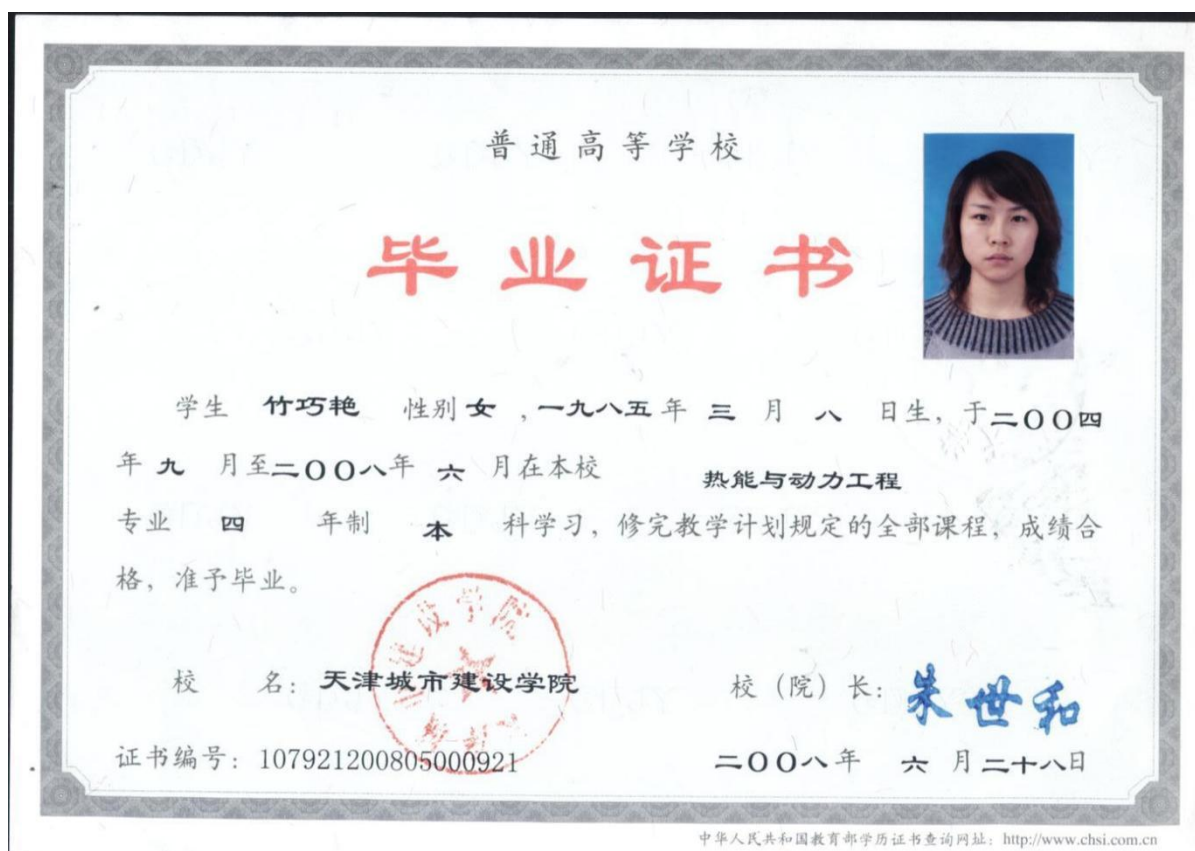 普通高等学校
毕业证书
学生 竹巧艳 性别 女 ，一九八五 年 三 月 八 日生，于二〇〇四
年 九 月至二〇〇八年 六 月在本校 热能与动力工程
专业 四 年制 本 科学习，修完教学计划规定的全部课程，成绩合
格，准予毕业。
建设学院
校 名：天津城市建设学院 校（院）长：朱世和
证书编号：107921200805000921 二〇〇八年 六 月二十八日
中华人民共和国教育部学历证书查询网址：http://www.chsi.com.cn